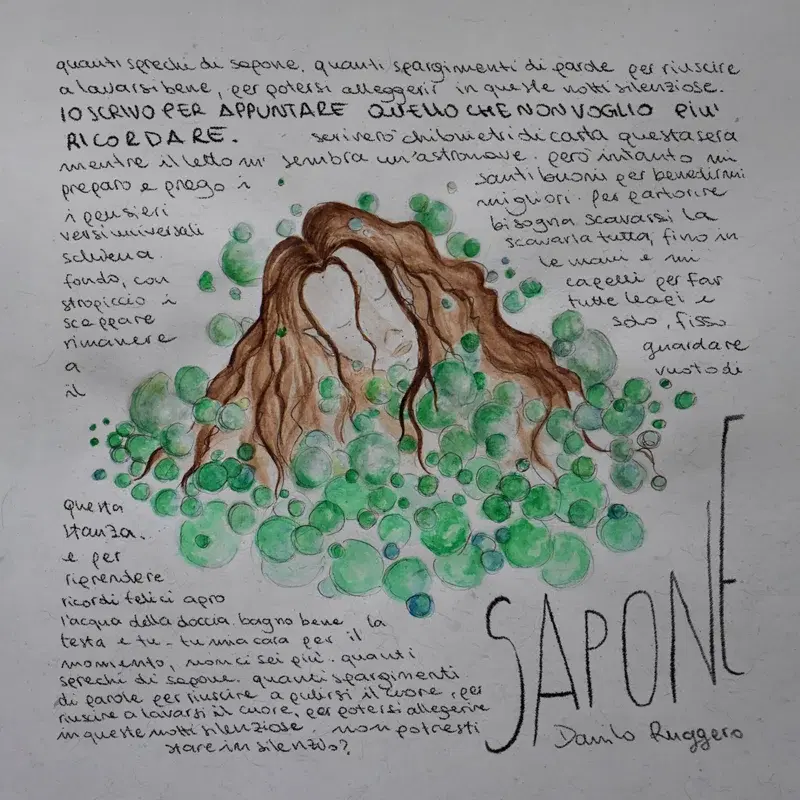 quanti sprechi di sapone. quanti spargimenti di parole per riuscire
a lavarsi bene, per potersi alleggerir in queste notti silenziose.
IO SCRIVO PER APPUNTARE QUELLO CHE NON VOGLIO PIU'
RICORDARE. scriverò chilometri di carta questa sera
mentre il letto mi sembra un'astronave. però intanto mi
preparo e prego i santi buoni per benedirmi
i pensieri migliori. per partorire
versi universali bisogna scavarsi la
schiena. scavarla tutta, fino in
fondo, con le mani e mi
stropiccio i capelli per far
scappare tutte le api e
rimanere solo, fisso
a guardare
il vuoto di
questa
stanza.
e per
riprendere
ricordi felici apro
l'acqua della doccia. bagno bene la
testa e tu - tu mia cara per il
momento, non ci sei più. quanti
sprechi di sapone. quanti spargimenti
di parole per riuscire a pulirsi il cuore, per
riuscire a lavarsi il cuore, per potersi alleggerire
in queste notti silenziose. non potresti
stare in silenzio?
SAPONE
Danilo Ruggero